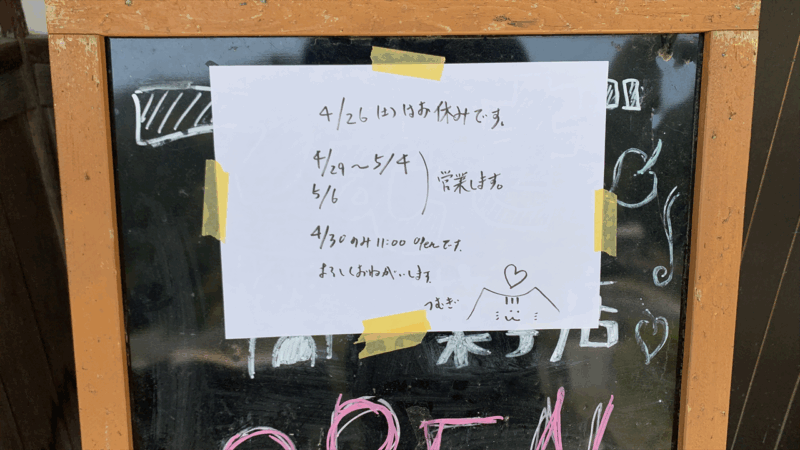 4/26(土)はお休みです。
4/29〜5/4
5/6
営業します。
4/30のみ11:00 openです。
よろしくおねがいします。
つむぎ
菓子店
OPEN